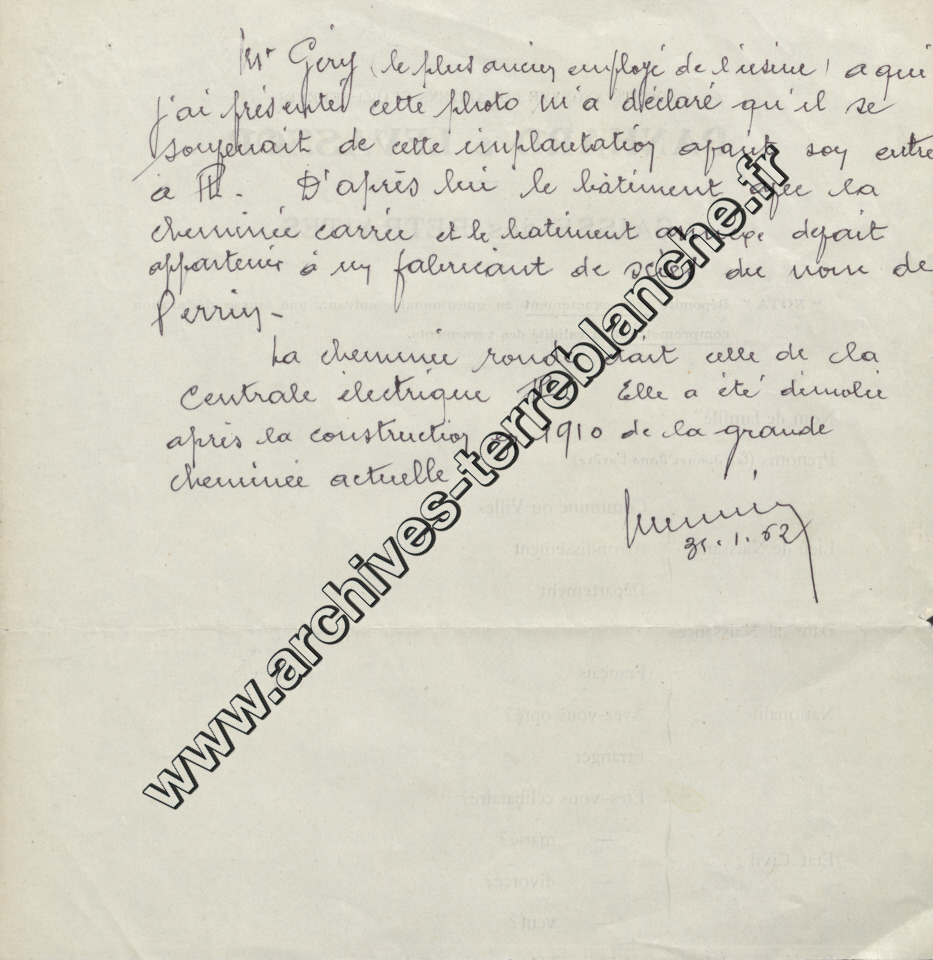 Mr Géry (le plus ancien employé de l'usine) a qui
j'ai présenté cette photo m'a déclaré qu'il se
souvenait de cette implantation avant son entré
à PL. D'après lui le bâtiment avec la
cheminée carrée et le batiment annexe devait
appartenir à un fabricant de scies du nom de
Perrin -
La cheminée ronde était celle de la
Centrale électrique PL. Elle a été démolie
après la construction en 1910 de la grande
cheminée actuelle
31.1.52
www.archives-terreblanche.fr
"NOTA"
Nom de famille
Prénoms
Commune ou Ville
Lieu de Naissance
Arrondissement
Département
Date de Naissance
Français
Nationalité
Avez-vous opté?
Étranger
Êtes-vous célibataire?
— marié?
État Civil
— divorcé?
— veuf?